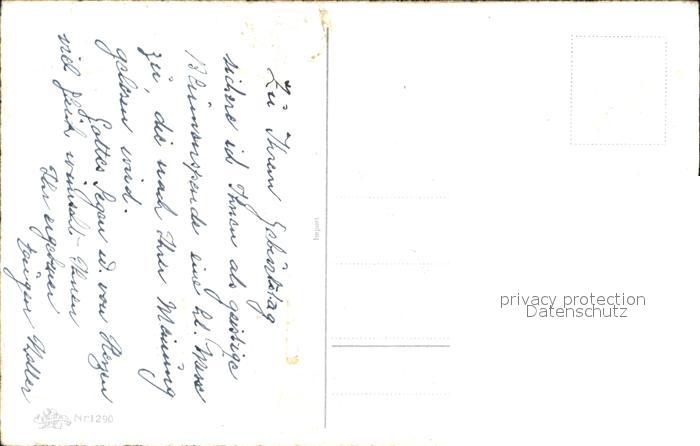 Zu Ihrem Geburtstag
sichere ich Ihnen als geistige
Blumenspende eine hl. Messe
zu, die nach Ihrer Meinung
gelesen wird.
Gottes Segen u. von Herzen
viel Glück wünscht Ihnen
Ihr ergebener
Eugen
Nr 1290
privacy protection
Datenschutz